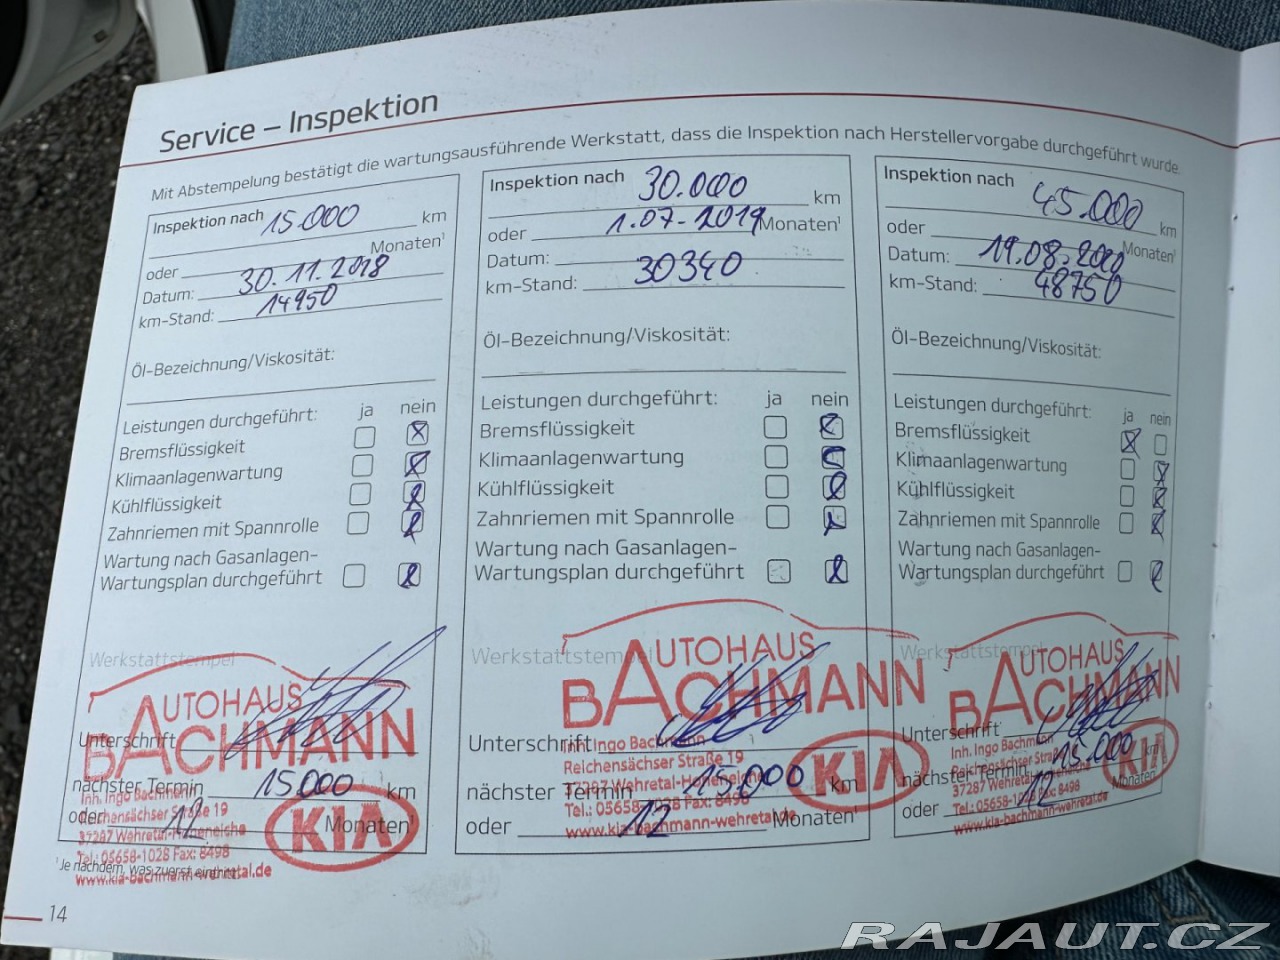 Service – Inspektion
Mit Abstempelung bestätigt die wartungsausführende Werkstatt, dass die Inspektion nach Herstellervorgabe durchgeführt wurde.
Inspektion nach 15.000 km
oder Monaten¹
Datum: 30.11.2018
km-Stand: 14950
Öl-Bezeichnung/Viskosität:
Leistungen durchgeführt: ja nein
Bremsflüssigkeit
Klimaanlagenwartung
Kühlflüssigkeit
Zahnriemen mit Spannrolle
Wartung nach Gasanlagen-
Wartungsplan durchgeführt
Werkstattstempel
AUTOHAUS
BACHMANN
Unterschrift
nächster Termin 15.000 km
Inh. Ingo Bachmann
oder 12 Monaten¹
Reichensächser Straße 19
37287 Wehretal-Hoheneiche
KIA
Tel.: 05658-1028 Fax: 8498
www.kia-bachmann-wehretal.de
¹ Je nachdem, was zuerst eintritt
Inspektion nach 30.000 km
oder Monaten¹
1.07-2019
Datum:
km-Stand: 30340
Öl-Bezeichnung/Viskosität:
Leistungen durchgeführt: ja nein
Bremsflüssigkeit
Klimaanlagenwartung
Kühlflüssigkeit
Zahnriemen mit Spannrolle
Wartung nach Gasanlagen-
Wartungsplan durchgeführt
Werkstattstempel
AUTOHAUS
BACHMANN
Unterschrift
Inh. Ingo Bachmann
Reichensächser Straße 19
KIA
nächster Termin 15.000 km
37287 Wehretal-Hoheneiche
Tel.: 05658-1028 Fax: 8498
oder 12 Monaten¹
www.kia-bachmann-wehretal.de
Inspektion nach 45.000 km
oder Monaten¹
Datum: 19.08.2020
km-Stand: 48750
Öl-Bezeichnung/Viskosität:
Leistungen durchgeführt: ja nein
Bremsflüssigkeit
Klimaanlagenwartung
Kühlflüssigkeit
Zahnriemen mit Spannrolle
Wartung nach Gasanlagen-
Wartungsplan durchgeführt
Werkstattstempel
AUTOHAUS
BACHMANN
Unterschrift
Inh. Ingo Bachmann
Reichensächser Straße 19
KIA
nächster Termin 15.000 km
37287 Wehretal-Hoheneiche
oder 12 Monaten¹
Tel.: 05658-1028 Fax: 8498
www.kia-bachmann-wehretal.de
14
RAJAUT.CZ